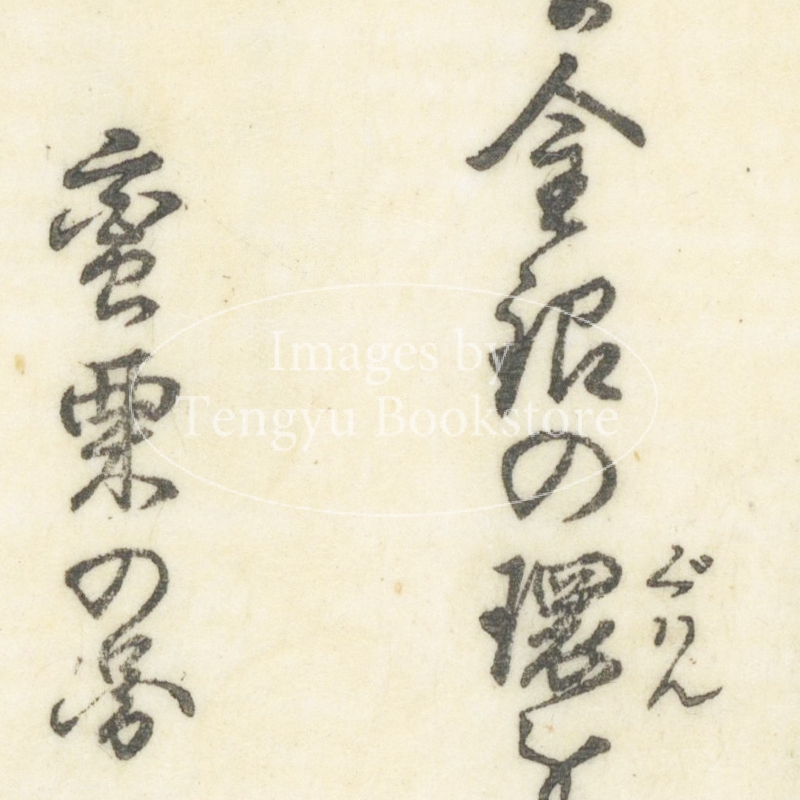 金銀の環
ぐりん
蛮栗の労
Images by
Tengyu Bookstore